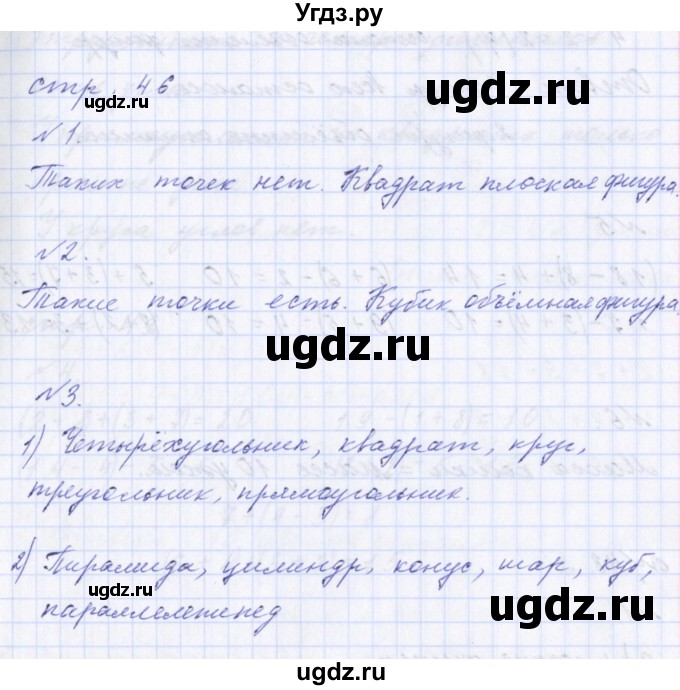 Угдз.ру
стр. 46
ugdz.ru
ugdz.ru
№1.
ugdz.ru
Таких точек нет. Квадрат плоская фигура.
ugdz.ru
№2.
ugdz.ru
Такие точки есть. Кубик объёмная фигура.
ugdz.ru
ugdz.ru
№3.
1) Четырёхугольник, квадрат, круг,
ugdz.ru
треугольник, прямоугольник.
ugdz.ru
2) Пирамида, цилиндр, конус, шар, куб,
ugdz.ru
параллелепипед
ugdz.ru
ugdz.ru